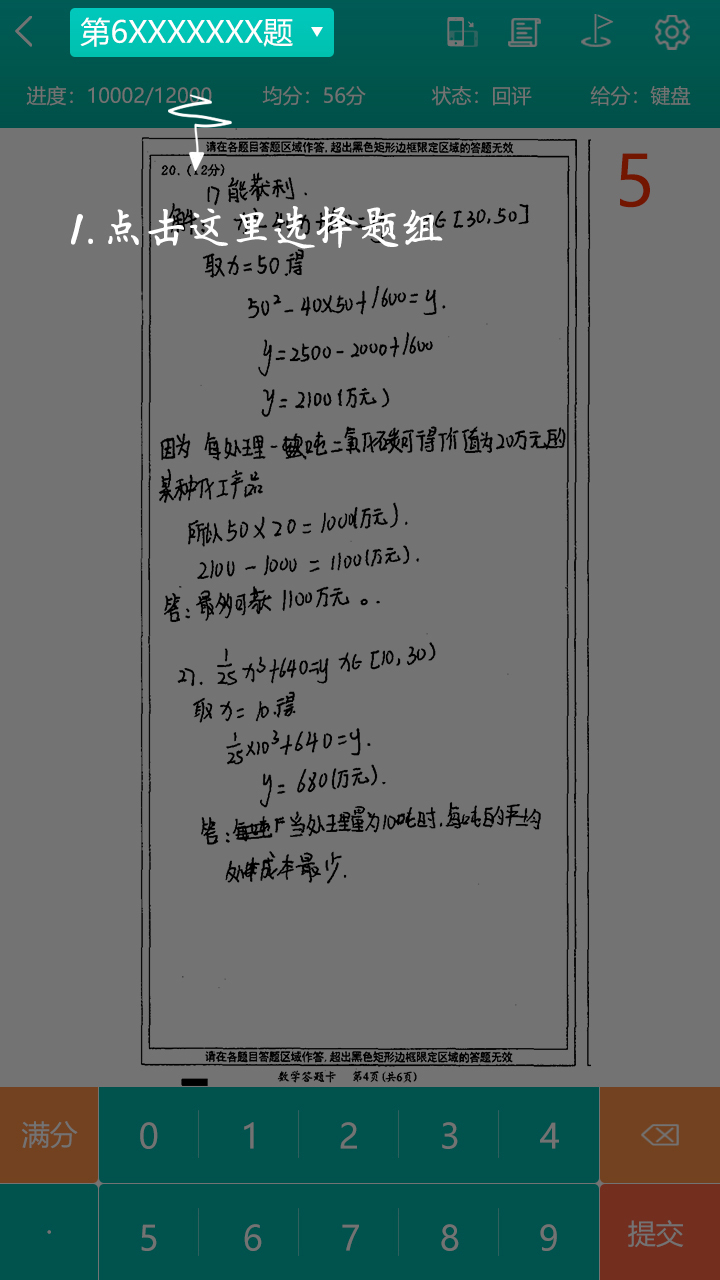 第6XXXXXXX题
进度：10002/12000 均分：56分 状态：回评 给分：键盘
请在各题目答题区域作答，超出黑色矩形边框限定区域的答题无效
5
20.（12分）
1) 能获利.
∈[30,50]
1.点击这里选择题组
取x=50.得
50²-40×50+1600=y.
y=2500-2000+1600
y=2100(万元)
因为 每处理一吨二氧化碳可得价值为20万元的
某种化工产品
所以50×20=1000(万元).
2100-1000=1100(万元).
答:最多可获 1100万元。.
2). 1/25 x³+640=y x∈[10,30)
取x=10.得
1/25×10³+640=y.
y=680(万元).
答: 当处理量为10吨时,每吨的平均
成本最少.
请在各题目答题区域作答，超出黑色矩形边框限定区域的答题无效
数学答题卡 第4页(共6页)
满分 0 1 2 3 4
. 5 6 7 8 9 提交